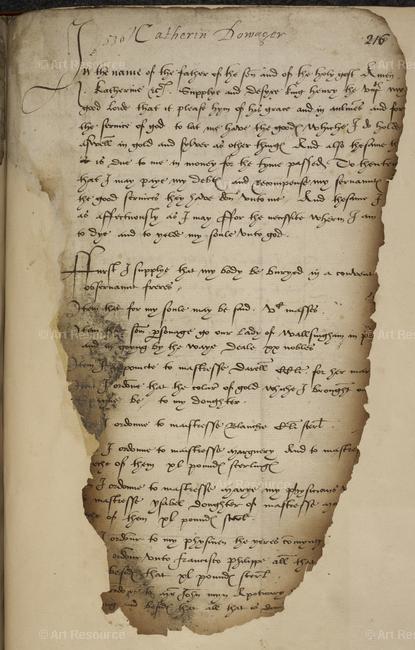 1536 Catherin Dowager
216
In the name of the father of the son and of the holy gost Amen
I. Katherine &c. Supplye and desyre king henry the viij my
good lorde that it please hym of his grace and in almes and for
the service of god to let me have the goodes Whiche I do holde
aswell in gold and selver as other thinges And also thesame th
is due to me in money for the tyme passed To thente
that I may paye my debtes and recompense my servantes
the good services they have don unto me. And thesame I
as affectuously as I may ffor the necessite wherin I am
to dye and to yelde my soule unto god.
ffurst I supplye that my body be buryed in a convent
observaunt freres.
Item that for my soule may be said. vC masses.
Item that som personage go our lady of Wallsingham in p
and in going by the waye Deale xx nobles
Item I appoincte to maistresse Darell for her mar
Item I ordeine that the coler of gold whiche I brought
be to my doughter.
I ordeine to maistresse Blanche sterl.
I ordeine to maistresse Margery And to maistre
che of them xl poundes sterlinges
I ordeine to maistresse Marye my physicians
maistresse ysabel doughter of maistresse
of them xl poundes sterl.
ordeine to my physicien the yeres
ordeine unto francisco philippo all that
besides that xl poundes sterl.
to my
and besides that all that is
© Art Resource
© Art Resource
© Art Resource
© Art Resource
© Art Resource
© Art Resource
© Art Resource
© Art Resource